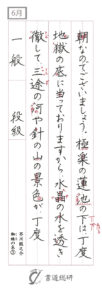 6月
朝なのでございましょう。極楽の蓮池の下は丁度
地獄の底に当っておりますから、水晶の水を透き
徹して三途の河や針の山の景色が丁度
一般　段級
芥川龍之介
蜘蛛の糸③
書道総研